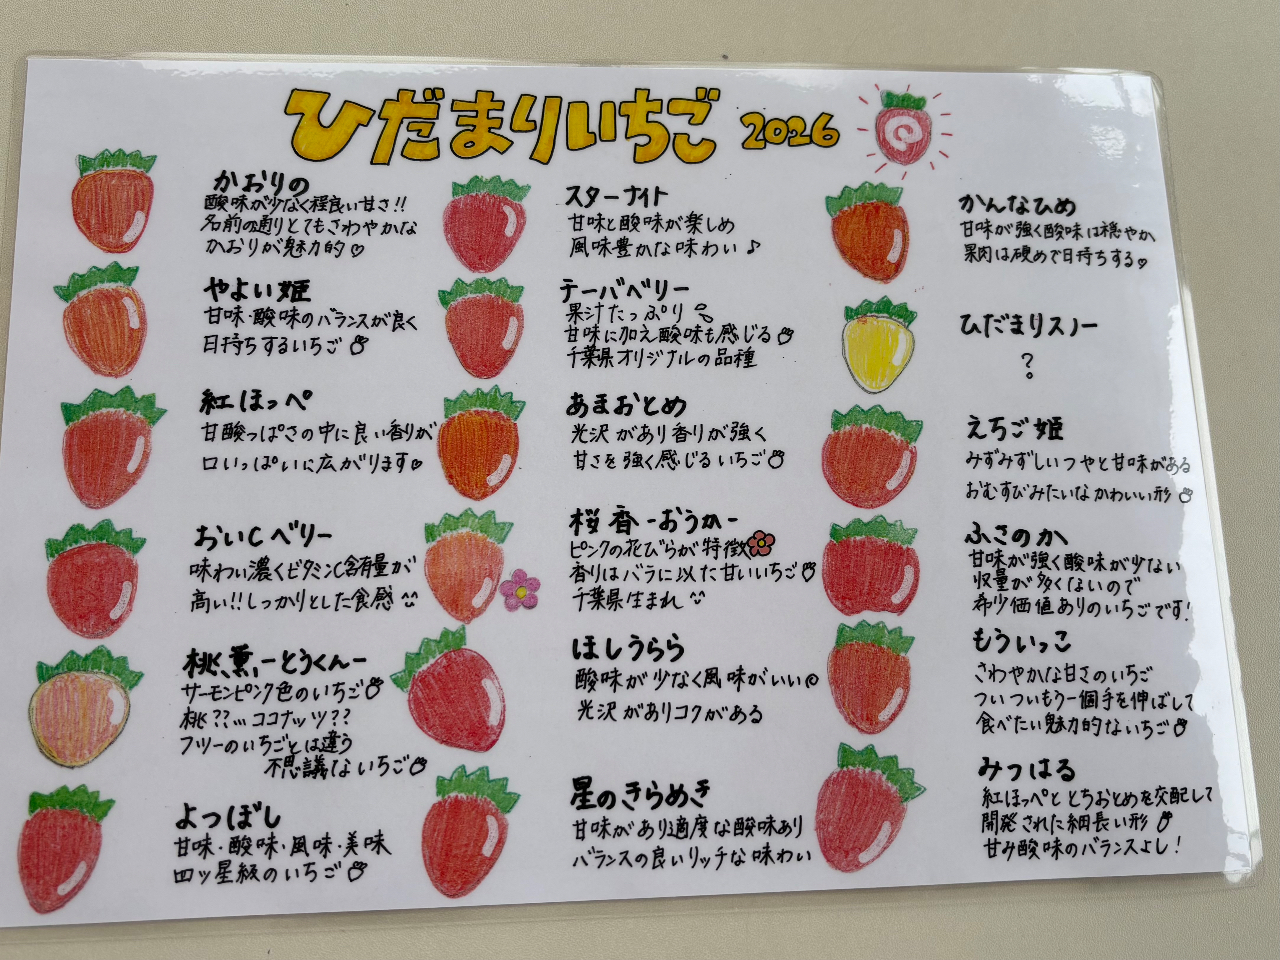 ひだまりいちご 2026
かおりの
酸味が少なく程良い甘さ!!
名前の通りとてもさわやかな
かおりが魅力的♡
やよい姫
甘味・酸味のバランスが良く
日持ちするいちご
紅ほっぺ
甘酸っぱさの中に良い香りが
口いっぱいに広がります♡
おいCベリー
味わい濃くビタミンC含有量が
高い!!しっかりとした食感
桃薫-とうくん-
サーモンピンク色のいちご
桃??…ココナッツ??
フツーのいちごとは違う
不思議ないちご
よつぼし
甘味・酸味・風味・美味
四ッ星級のいちご
スターナイト
甘味と酸味が楽しめ
風味豊かな味わい♪
テーバベリー
果汁たっぷり
甘味に加え酸味も感じる
千葉県オリジナルの品種
あまおとめ
光沢があり香りが強く
甘さを強く感じるいちご
桜香-おうか-
ピンクの花びらが特徴
香りはバラに以た甘いいちご
千葉県生まれ
ほしうらら
酸味が少なく風味がいい
光沢がありコクがある
星のきらめき
甘味があり適度な酸味あり
バランスの良いリッチな味わい
かんなひめ
甘味が強く酸味は穏やか
果肉は硬めで日持ちする♡
ひだまりスノー
?
えちご姫
みずみずしいつやと甘味がある
おむすびみたいなかわいい形
ふさのか
甘味が強く酸味が少ない
収量が多くないので
希少価値ありのいちごです!
もういっこ
さわやかな甘さのいちご
ついついもう一個手を伸ばして
食べたい魅力的ないちご
みつはる
紅ほっぺととちおとめを交配して
開発された細長い形
甘み酸味のバランスよし!